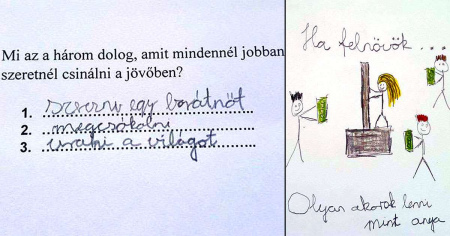 Mi az a három dolog, amit mindennél jobban
szeretnél csinálni a jövőben?
1. szerezni egy barátnőt
2. megcsókolni
3. uralni a világot
Ha felnövök...
Olyan akarok lenni
mint anya